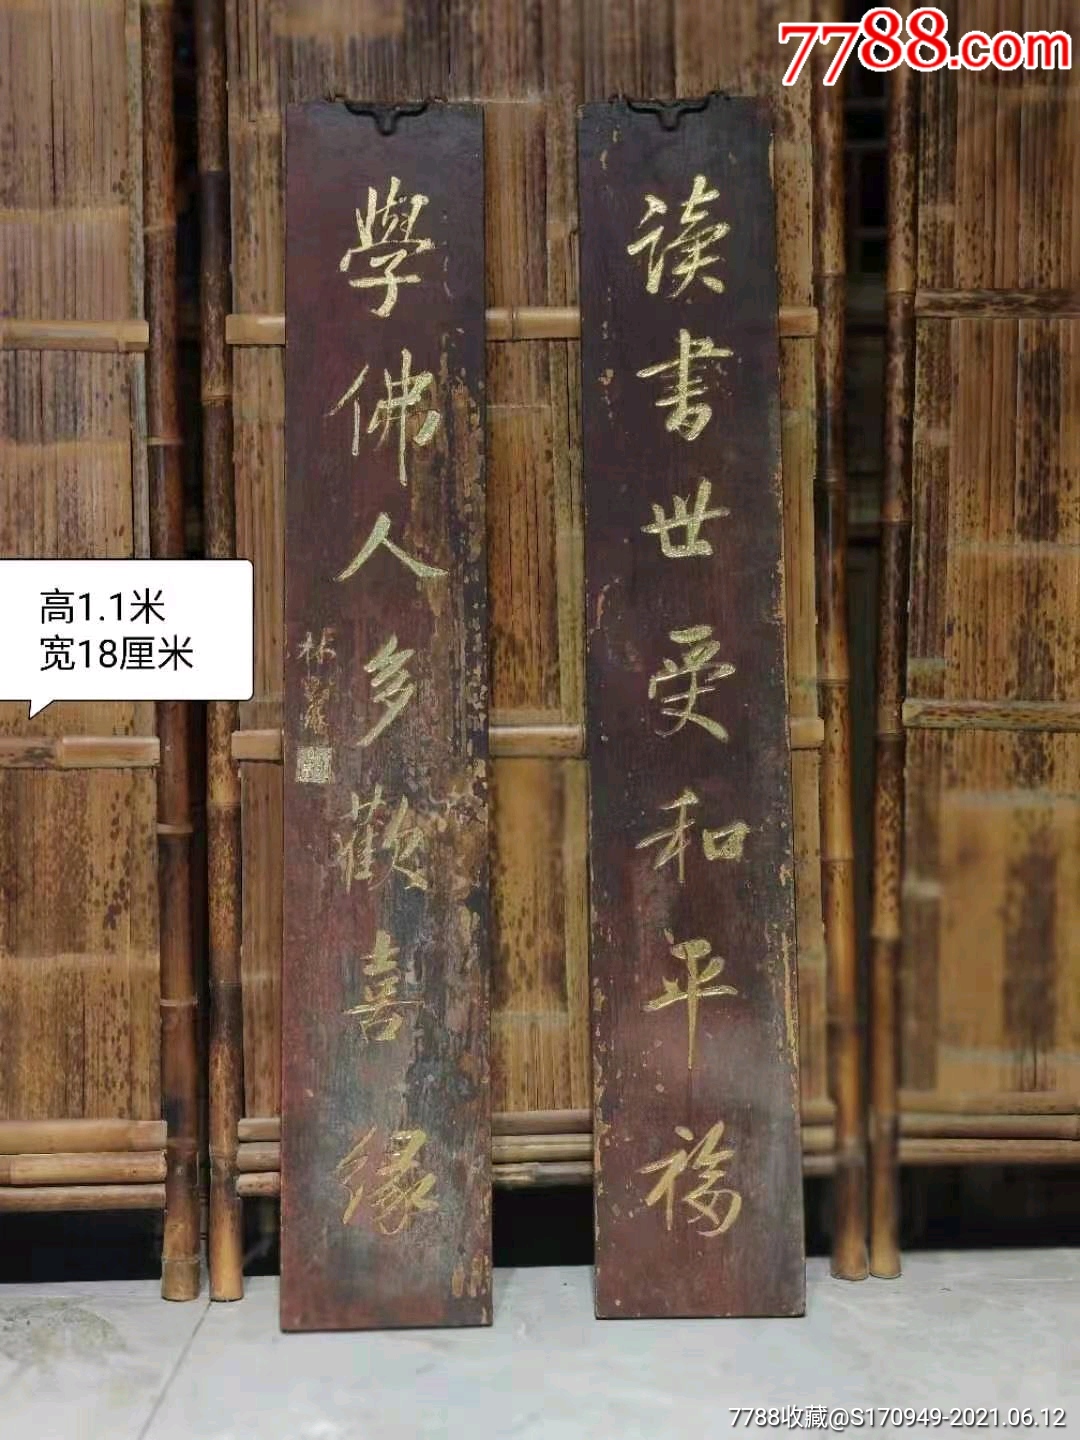 7788.com
读書世受和平福
學佛人多歡喜緣
林
高1.1米
宽18厘米
7788收藏@S170949-2021.06.12